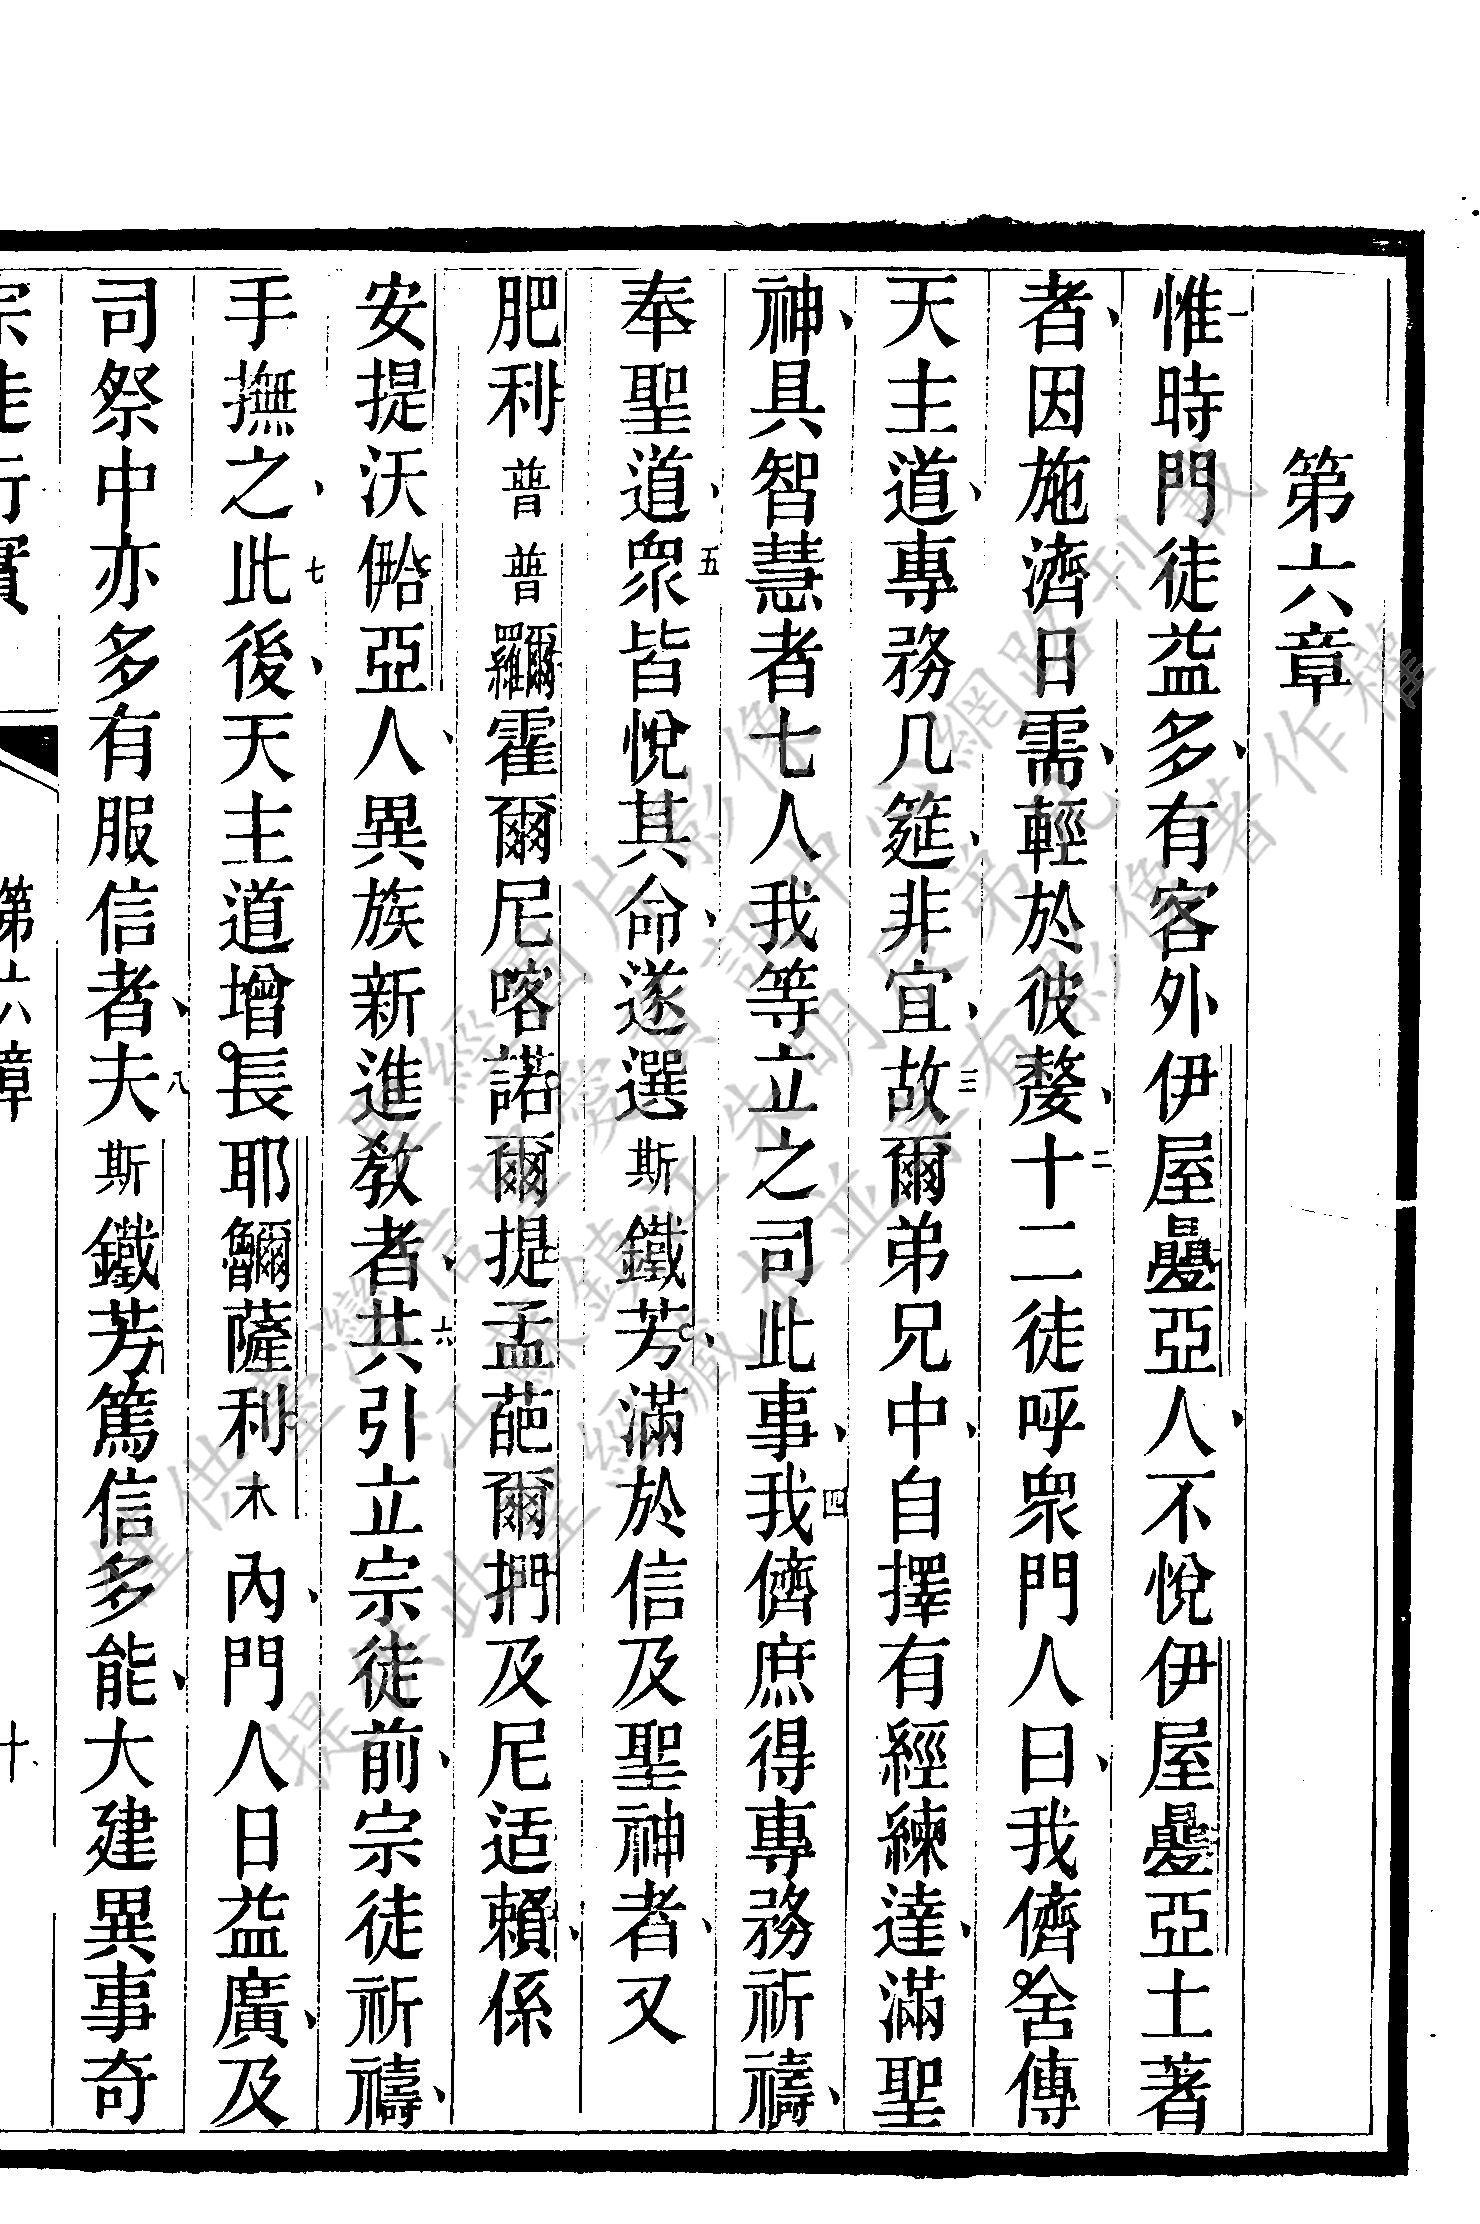 第六章
一惟時門徒益多、有客外伊屋疉亞人、不悅伊屋疉亞土著
者、因施濟日需、輕於彼嫠、二十二徒呼眾門人曰、我儕舍傳
天主道、專務几筵、非宜、三故爾弟兄中、自擇有經練達、滿聖
神、具智慧者七人、我等立之司此事、四我儕庶得專務祈禱、
奉聖道、五眾皆悅其命、遂選斯鐵芳、滿於信及聖神者、又
肥利普普囉爾霍爾尼喀諾爾提孟葩爾捫及尼适賴、係
安提沃人、異族新進教者、六共引立宗徒前、宗徒祈禱、
手撫之、七此後、天主道增長、耶薩利木內、門人日益廣、及
司祭中亦多有服信者、八夫斯鐵芳篤信多能、大建異事奇
宗徒行實 第六章 十
僅供臺灣信望愛聖經圖片影像
江蘇鎮江朱明中網路刊載
提供此聖經藏本並享有影像著作權